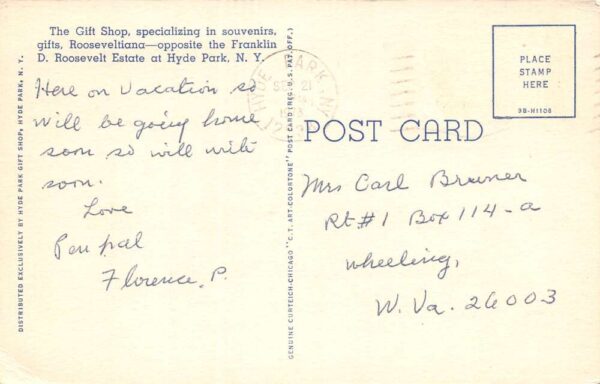 The Gift Shop, specializing in souvenirs,
gifts, Rooseveltiana—opposite the Franklin
D. Roosevelt Estate at Hyde Park, N. Y.
Here on vacation so
will be going home
soon so will write
soon.
Love
Pen pal
Florence, P.
DISTRIBUTED EXCLUSIVELY BY HYDE PARK GIFT SHOP, HYDE PARK, N. Y.
GENUINE CURTEICH-CHICAGO "C. T. ART-COLORTONE" POST CARD (REG. U. S. PAT. OFF.)
HYDE PARK N.Y.
SEP 21
POST CARD
PLACE
STAMP
HERE
3B-H1106
Mrs Carl Bruner
Rt #1 Box 114-a
Wheeling,
W. Va. 26003